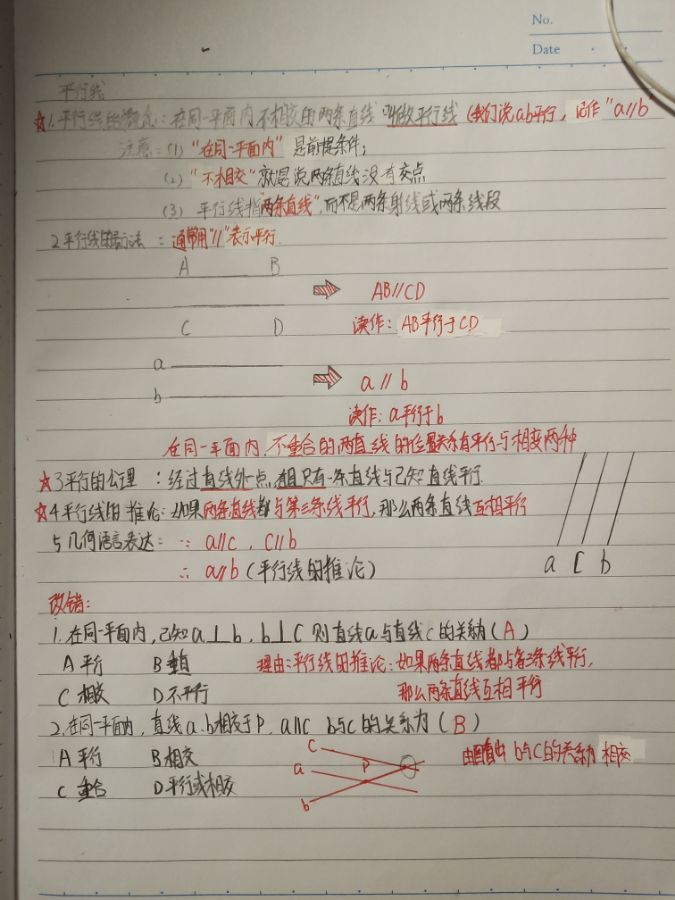 No.
Date
平行线
☆1.平行线的概念：在同一平面内不相交的两条直线 叫做平行线（我们说ab平行，记作"a//b
注意：(1) "在同一平面内" 是前提条件；
(2) "不相交"就是说两条直线没有交点
(3) 平行线指"两条直线"，而不是两条射线或两条线段
2.平行线的表示方法：通常用"//"表示平行.
A B
⇒ AB//CD
C D 读作：AB平行于CD
a
⇒ a // b
b
读作：a平行于b
在同一平面内，不重合的两直线的位置关系有平行与相交两种
☆3平行的公理：经过直线外一点，有且只有一条直线与已知直线平行.
☆4平行线的推论：如果两条直线都与第三条线平行，那么两条直线互相平行
5 几何语言表达：∵ a//c，c//b
∴ a//b（平行线的推论）
a c b
改错：
1.在同一平面内，已知a⊥b，b⊥c 则直线a与直线c的关系为（A）
A 平行 B 垂直 理由：平行线的推论：如果两条直线都与第三条线平行，
C 相交 D 不平行 那么两条直线互相平行
2.在同一平面内，直线a.b相交于P，a//c b与c的关系为（B）
A 平行 B 相交 由图看出 b与c的关系为 相交
C 重合 D 平行或相交
c
a P
b